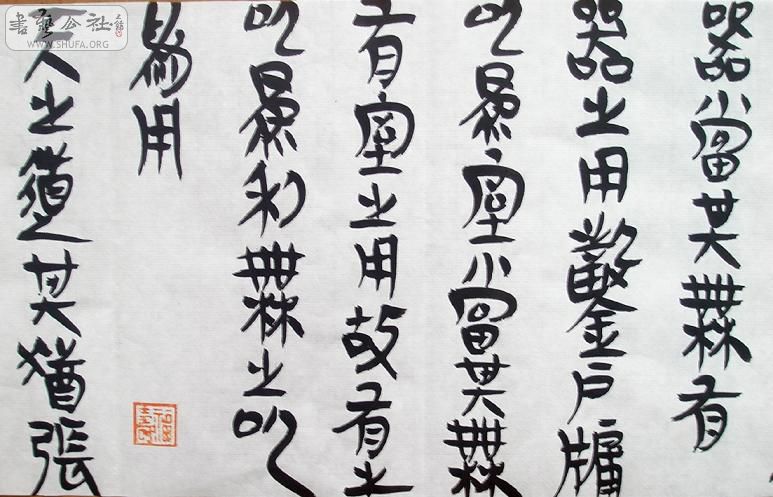 器當其無有
器之用鑿戶牖
以為室當其無
有室之用故有之
以為利無之以
為用
天之道其猶張
WWW.SHUFA.ORG